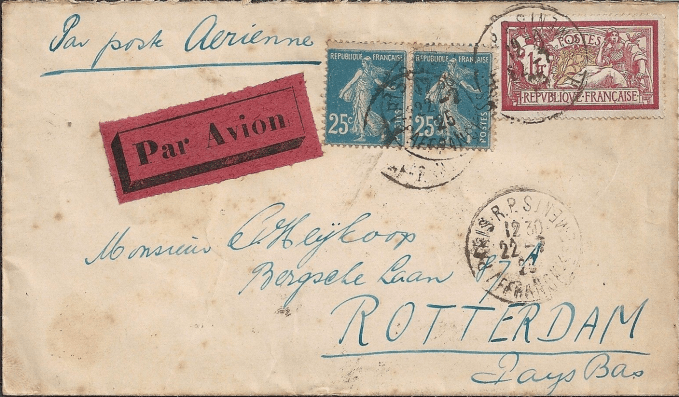 Par poste Aérienne
REPUBLIQUE FRANÇAISE
25c
POSTES
REPUBLIQUE FRANÇAISE
25c
POSTES
POSTES
1F
REPVBLIQVE FRANÇAISE
Par Avion
PARIS R.P. AFFRANCHISSEMENTS
12 30
22
25
Monsieur C. Heijkoop
Bergsche Laan
ROTTERDAM
Pays Bas